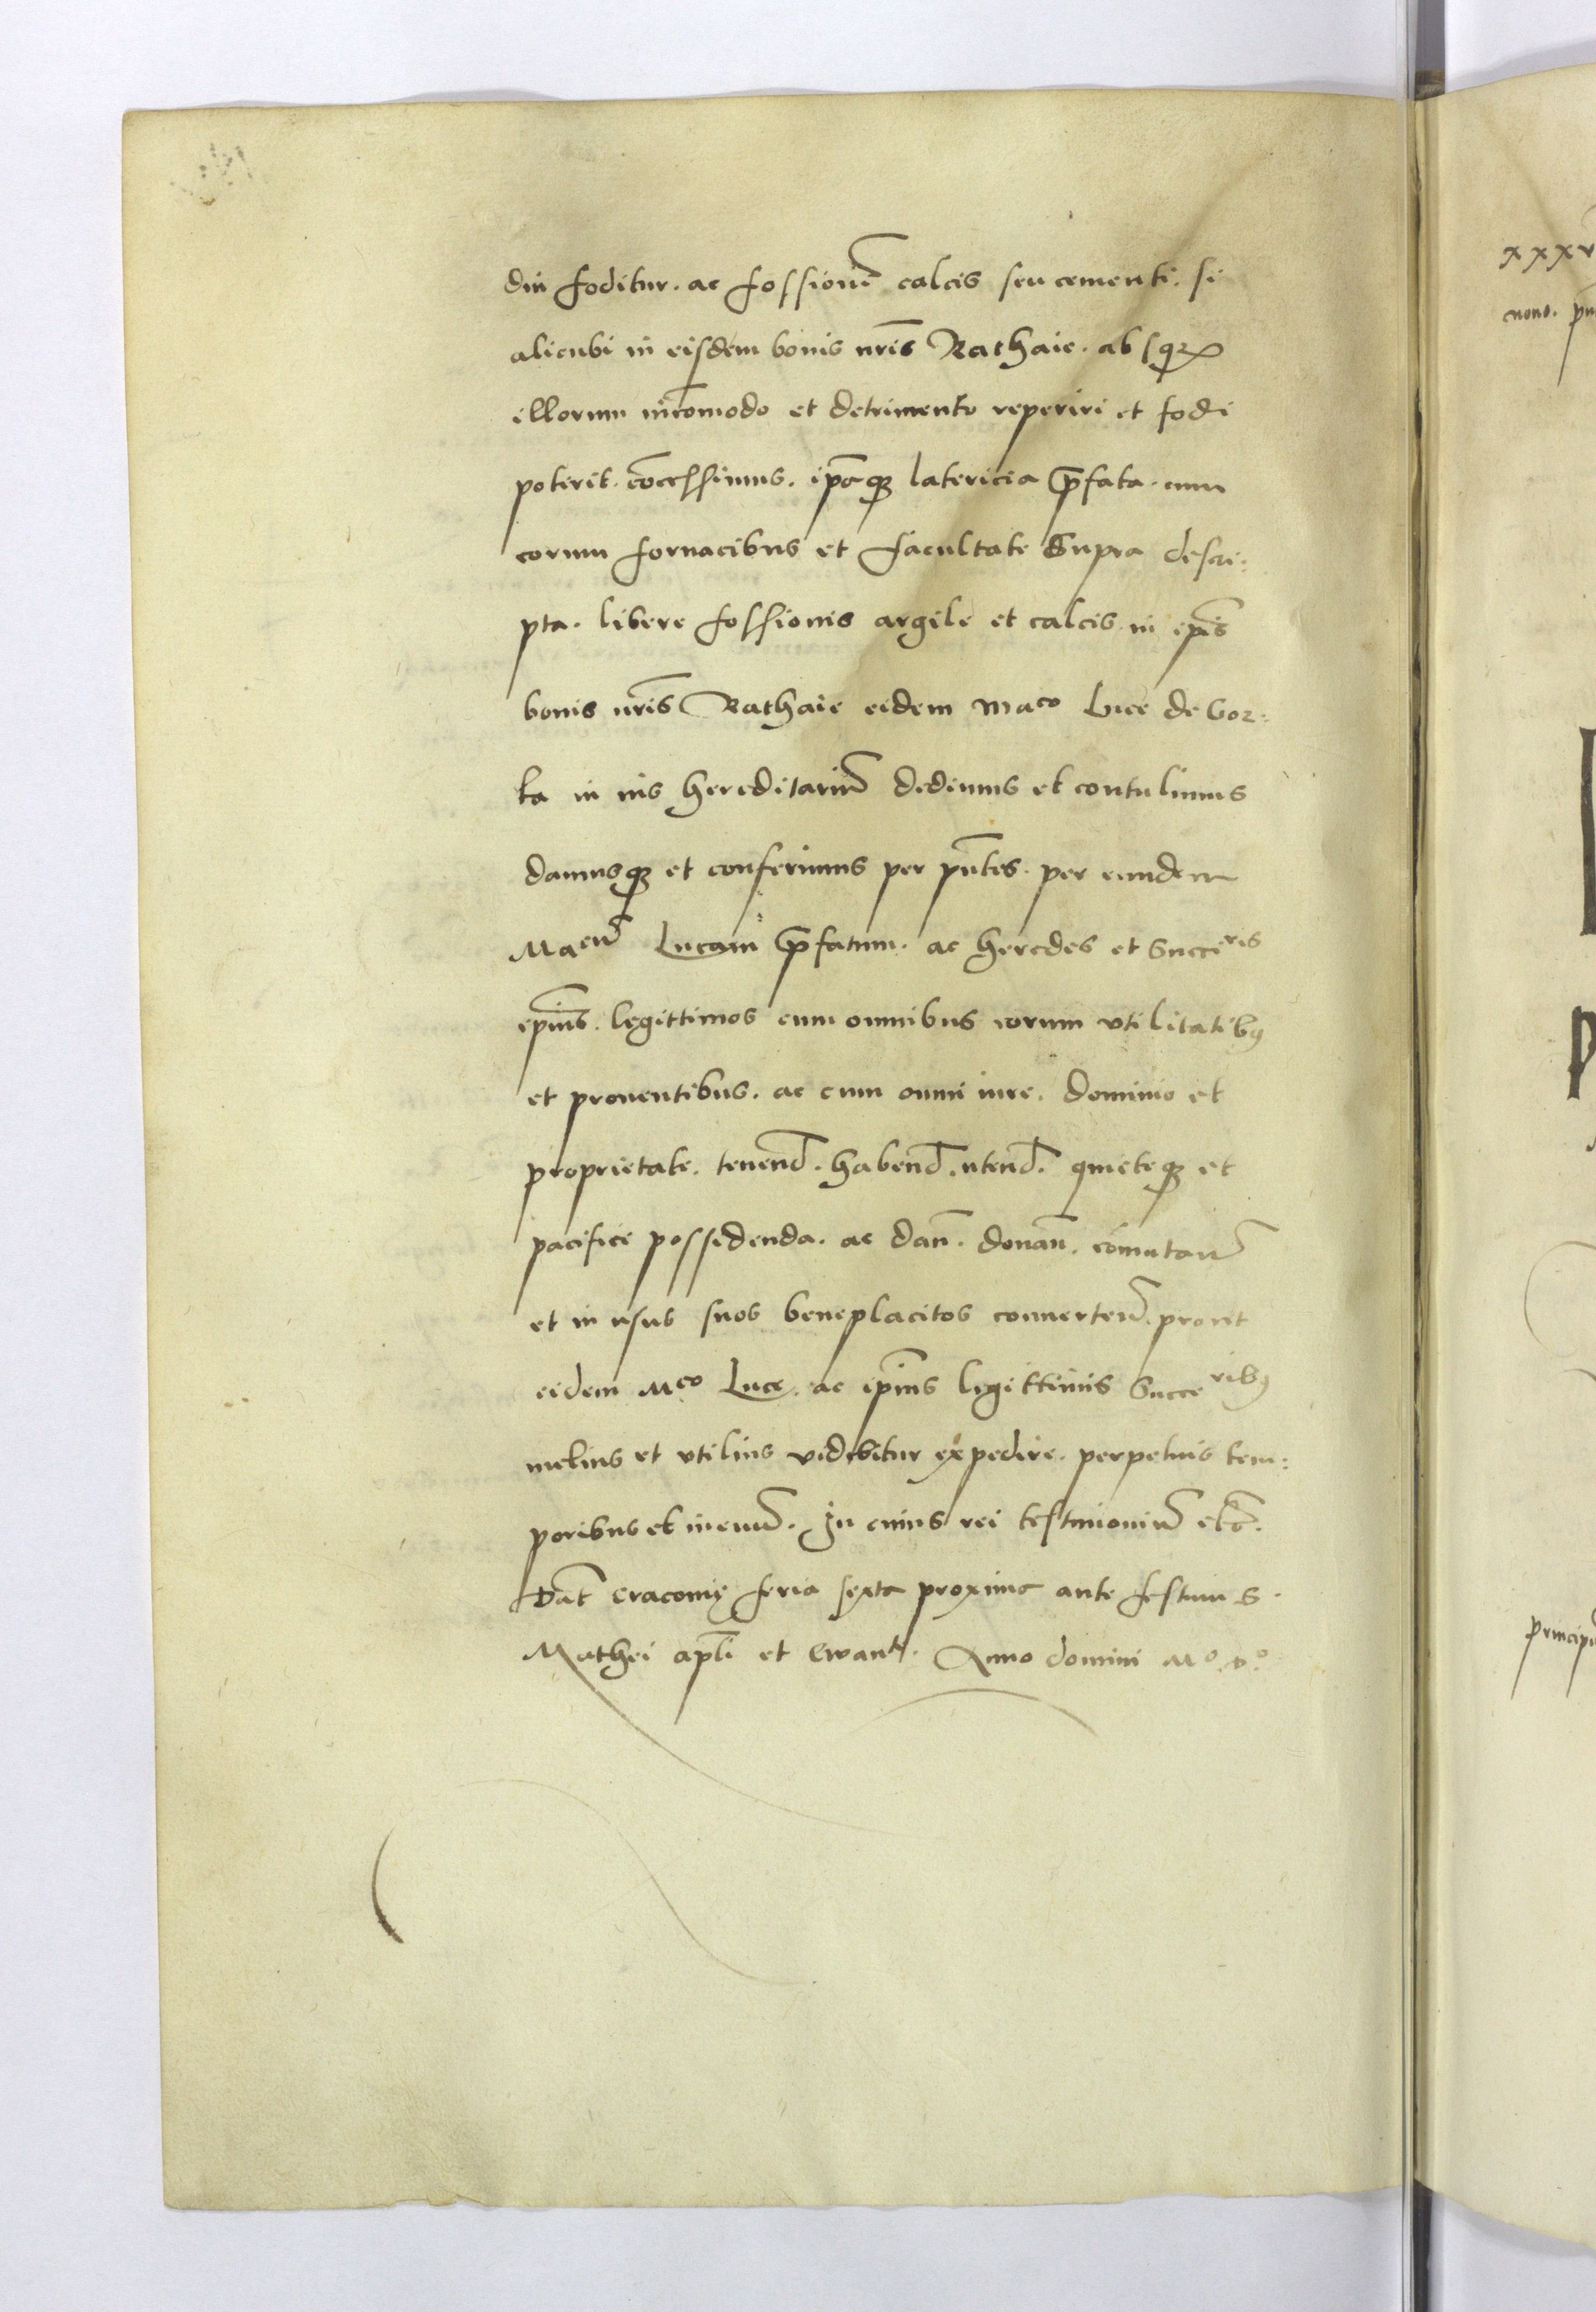 diu foditur. ac fossionē calcis seu cementi. si
alicubi in eisdem bonis nr̄is Rathaie. absqȝ
illorum incōmodo et detrimento reperiri et fodi
poterit. cōcessimus. ip̄aqȝ latericia p̄fata. cum
eorum fornacibus et facultate Supra descri:
pta. libere fossionis argile et calcis in ip̄is
bonis nr̄is Rathaie eidem Maco Luce de Gor:
ka in ius hereditariū dedimus et contulimus
damusqȝ et conferimus per pn̄tes. per eundem
Macū Lucam p̄fatum. ac heredes et Succeres
ip̄ius. legittimos cum omnibus eorum vtilitatibꝰ
et prouentibus. ac cum omni iure. dominio et
proprietate. tenend̄. habend̄. utend̄. quieteqȝ et
pacifice possidenda. ac dan̄. donan̄. cōmutan̄
et in usus suos beneplacitos conuerten̄. prout
eidem Mco Luce. ac ip̄ius legittimis Succeribꝰ
melius et vtilius videbitur expedire. perpetuis tem:
poribus et in euū. In cuius rei testimoniū etc̄.
Dat̄ Cracouię feria sexta proxima ante festum S.
Mathei apl̄i et Ewante. Anno domini Mo. vo.
xxxv
nono.
P
principi